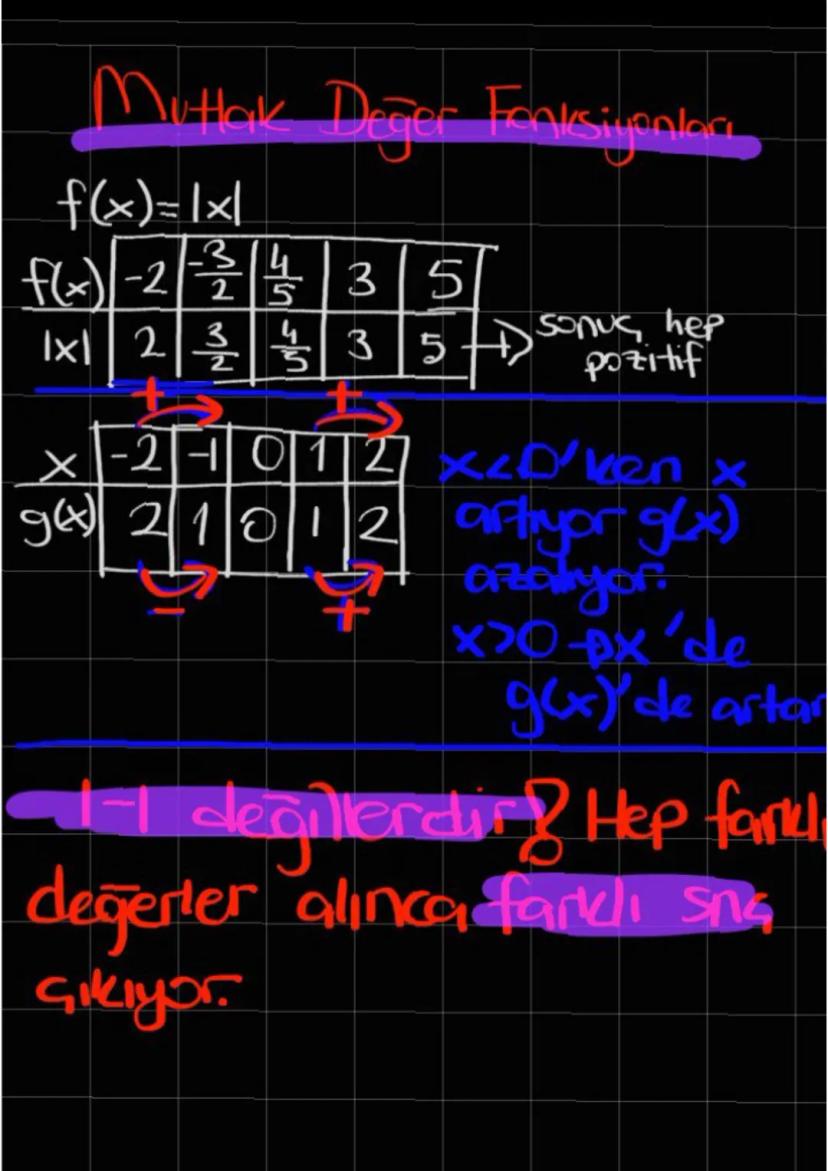 Mutlak Değer Fonksiyonları
f(x)=|x|
f(x) -2 -3/2 4/5 3 5
|x| 2 3/2 4/5 3 5 → sonuç hep
pozitif
+ +
x -2 -1 0 1 2
g(x) 2 1 0 1 2
- +
x<0'ken x
artıyor g(x)
azalıyor.
x>0 → x'de
g(x)'de artar
1-1 değillerdir! Hep farklı
değerler alınca farklı snç
çıkıyor.